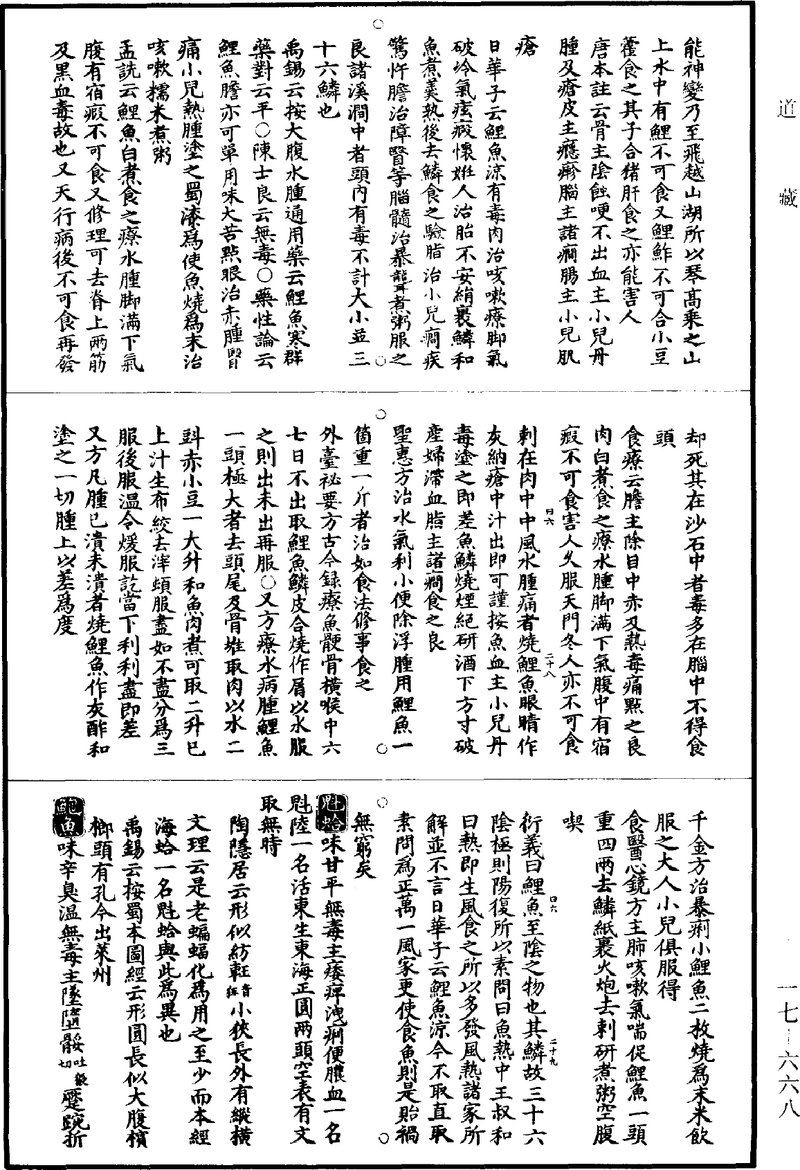 道藏
能神變乃至飛越山湖所以琴髙乘之山
上水中有鯉不可食又鯉鮓不可合小豆
藿食之其子合猪肝食之亦能害人
唐本註云骨主陰蝕哽不出血主小兒丹
腫及瘡皮主癮㾦腦主諸癎腸主小兒肌
瘡
日華子云鯉魚涼有毒肉治咳嗽療脚氣
破冷氣痃癖懷姙人治胎不安絹裹鱗和
魚煮羹熟後去鱗食之驗脂治小兒癎疾
驚忤膽治障瞖等腦髓治暴聾煮粥服之
良諸溪澗中者頭内有毒不計大小並三
十六鱗也
禹錫云按大腹水腫通用藥云鯉魚寒群
藥對云平○陳士良云無毒○藥性論云
鯉魚膽亦可單用味大苦點眼治赤腫瞖
痛小兒熱腫塗之蜀漆爲使魚燒爲末治
咳嗽糯米煮粥
孟詵云鯉魚白煮食之療水腫脚滿下氣
腹有宿瘕不可食又修理可去脊上兩筋
及黒血毒故也又天行病後不可食再發
却死其在沙石中者毒多在腦中不得食
頭
食療云膽主除目中赤及熱毒痛點之良
肉白煮食之療水腫脚滿下氣腹中有宿
瘕不可食害人久服天門冬人亦不可食
刺在肉中中風水腫痛者燒鯉魚眼睛作
灰納瘡中汁出即可謹按魚血主小兒丹
毒塗之即差魚鱗燒煙絕研酒下方寸破
産婦滯血脂主諸癎食之良
聖惠方治水氣利小便除浮腫用鯉魚一
箇重一斤者治如食法修事食之
外臺祕要方古今録療魚骾骨橫喉中六
七日不出取鯉魚鱗皮合燒作屑以水服
之則出未出再服○又方療水病腫鯉魚
一頭極大者去頭尾及骨維取肉以水二
㪷赤小豆一大升和魚肉煮可取二升已
上汁生布絞去滓頓服盡如不盡分爲三
服後服温令煖服訖當下利利盡即差
又方凡腫已潰未潰者燒鯉魚作灰酢和
塗之一切腫上以差爲度
千金方治暴痢小鯉魚二枚燒爲末米飲
服之大人小兒俱服得
食醫心鏡方主肺咳嗽氣喘促鯉魚一頭
重四兩去鱗紙裹火炮去刺研煮粥空腹
喫
衍義曰鯉魚至陰之物也其鱗故三十六
陰極則陽復所以素問曰魚熱中王叔和
曰熱即生風食之所以多發風熱諸家所
解並不言日華子云鯉魚涼今不取直取
素問為正萬一風家更使食魚則是貽禍
無窮矣
魁蛤味甘平無毒主痿痺洩痢便膿血一名
魁陸一名活東生東海正圓兩頭空表有文
取無時
陶隱居云形似紡軖音狂小狹長外有縱橫
文理云是老蝙蝠化爲用之至少而本經
海蛤一名魁蛤與此爲異也
禹錫云按蜀本圖經云形圓長似大腹檳
榔頭有孔今出萊州
鮑魚味辛臭温無毒主墜墮骽吐猥切蹷踠折
一七—六六八